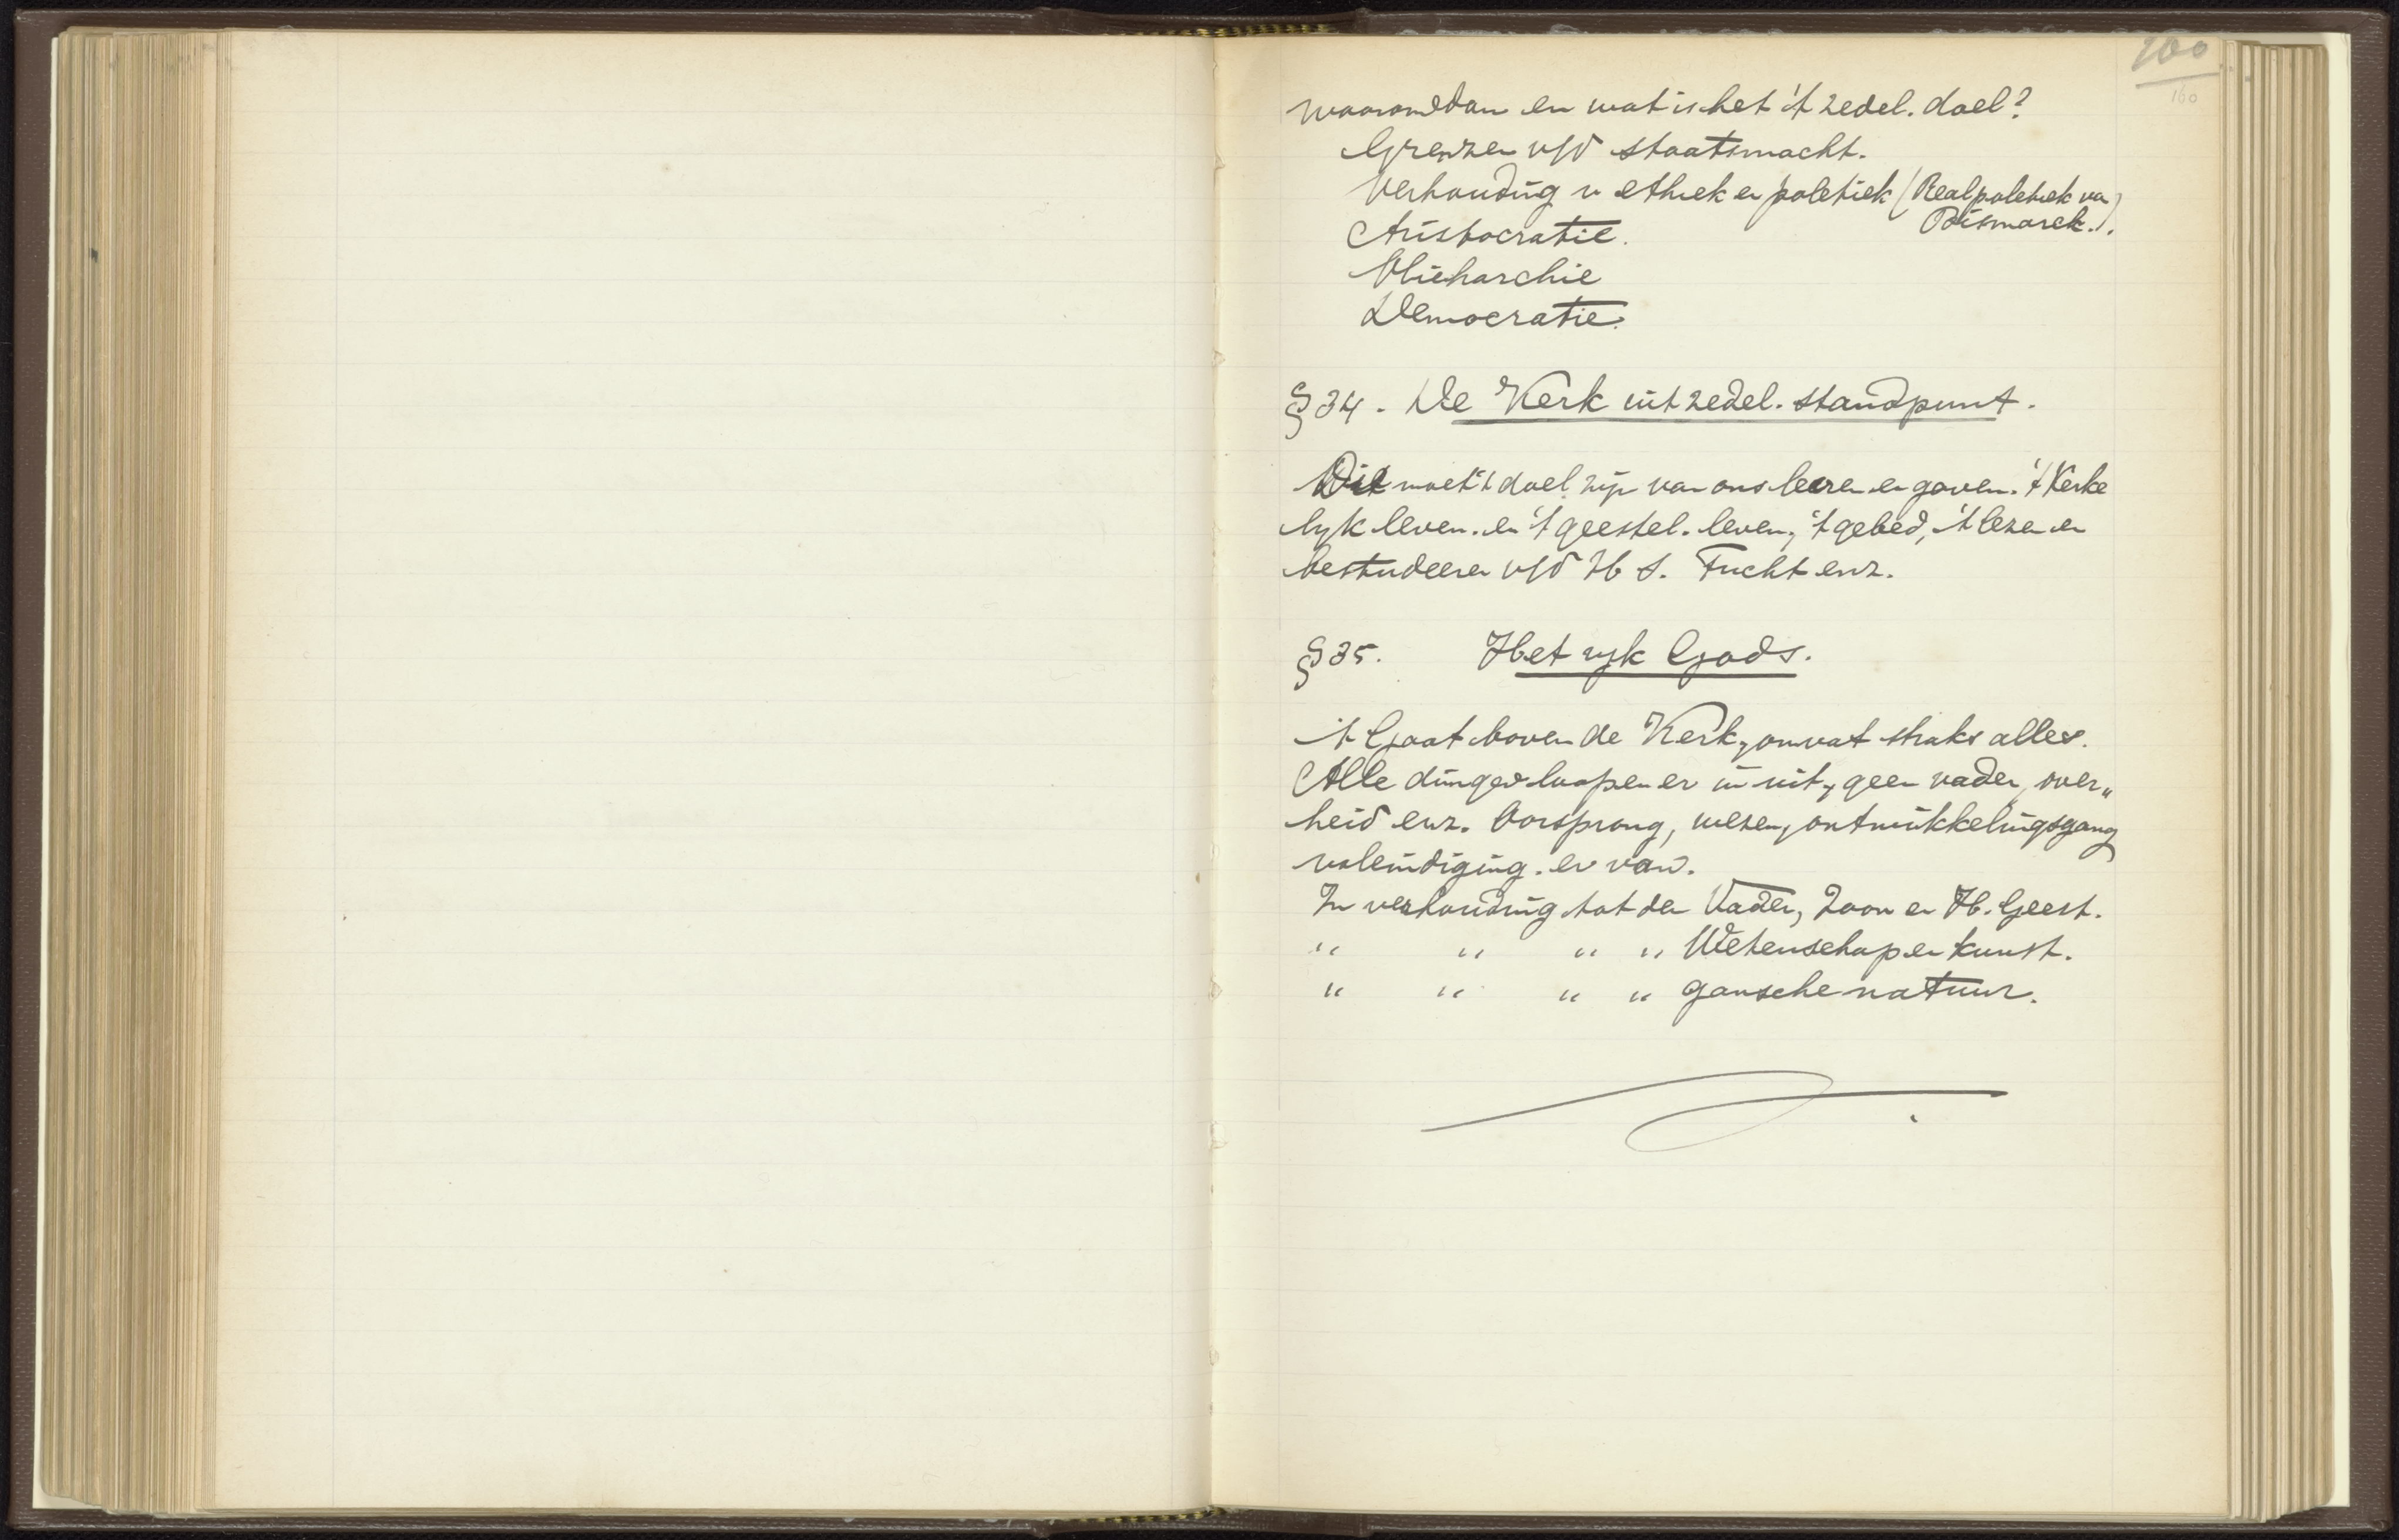 100
160
waaromdan en wat is het 't zedel. doel?
Grenzen v/d staatsmacht.
Verhouding v ethiek en politiek (Realpolitiek van
Bismarck.).
Aristocratie.
Democratie.
§ 34. De Kerk uit zedel. standpunt.
Dit moet 't doel zijn van ons leeren en gaven. 't Kerke
lyk leven. en 't geestel. leven, 't gebed, 't lezen en
bestudeeren v/d H S. Tucht enz.
§ 35. Het ryk Gods.
't Gaat boven de Kerk, omvat straks alles.
Alle dingen loopen er in uit, geen vader, over„
heid enz. Oorsprong, wezen, ontwikkelingsgang
voleindiging. er van.
In verhouding tot den Vader, Zoon en H. Geest.
" " " " Wetenschap en kunst.
" " " " gansche natuur.